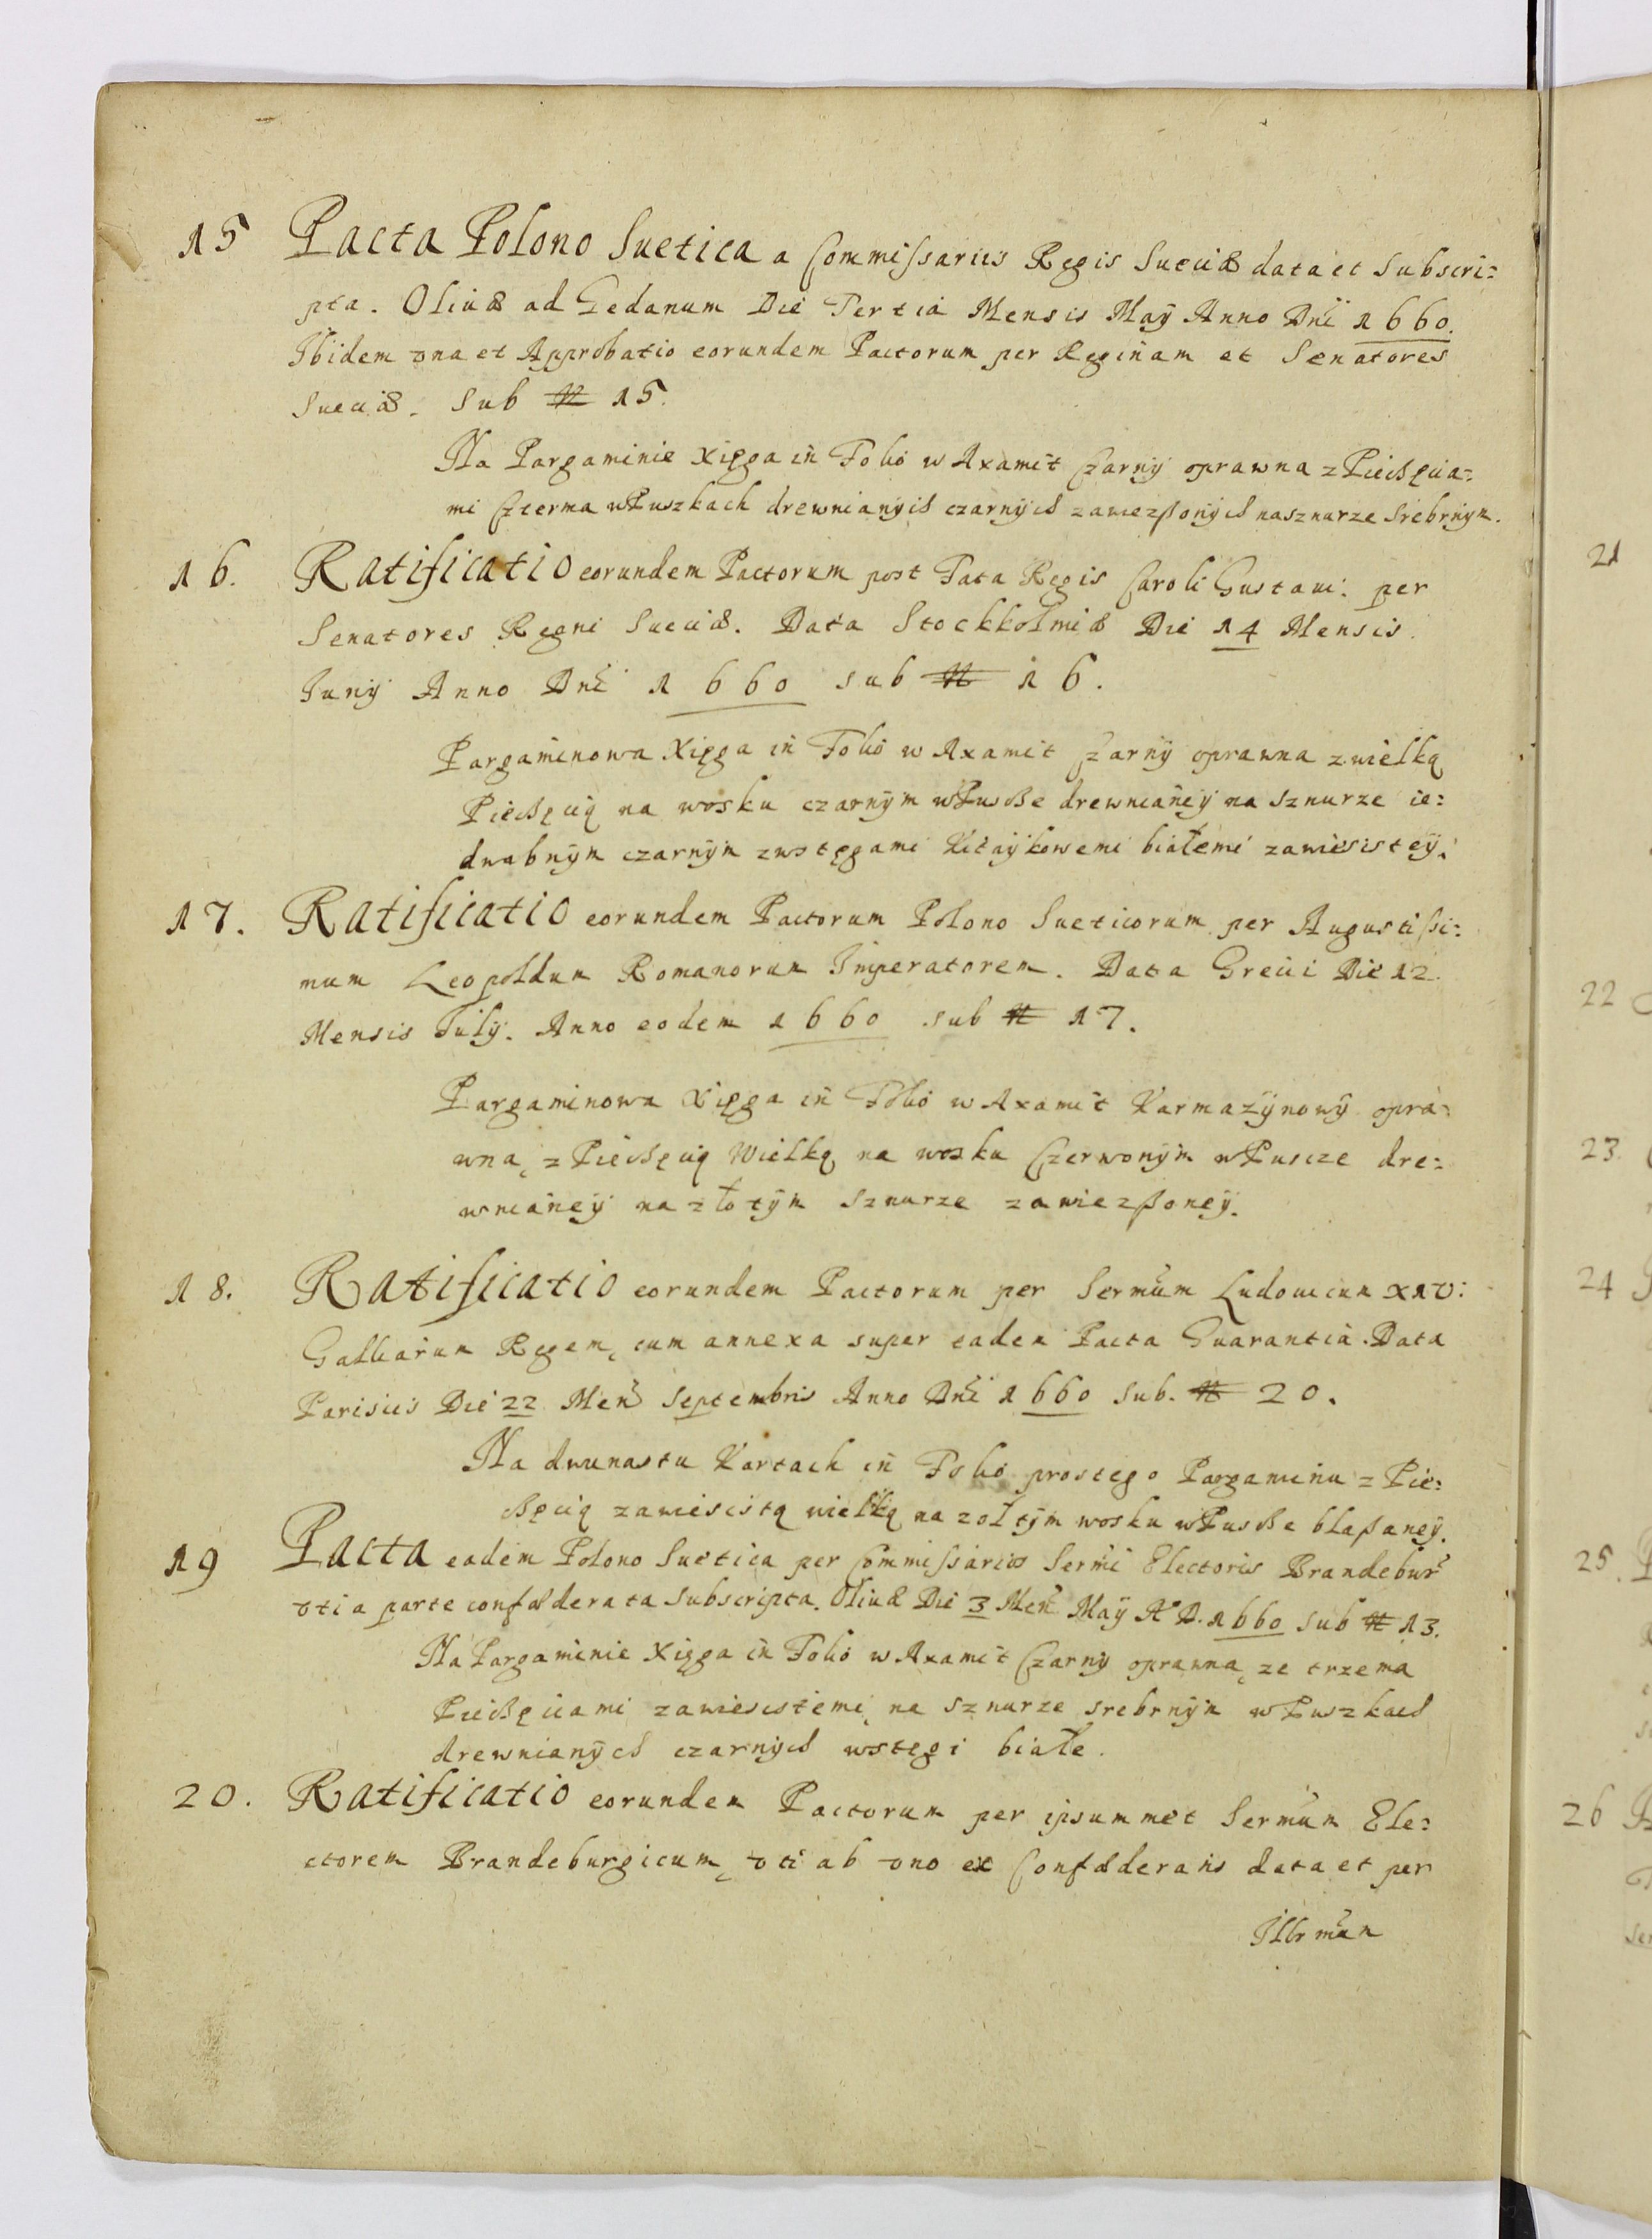 15 Pacta Polono Suetica a Commissariis Regis Sueciæ data et Subscri=
pta. Olivæ ad Gedanum Die Tertia Mensis Maÿ Anno Dnī 1660.
Ibidem vna et Approbatio eorundem Pactorum per Reginam et Senatores
Sueciæ. Sub N 15.
Na Pargaminie Xięga in Folio w Axamit Czarnÿ oprawna z Pieczęcia=
mi Czterma w Puszkach drewnianÿch czarnÿch zawieszonÿch na sznurze Srebrnÿm.
16. Ratificatio eorundem Pactorum post Fata Regis Caroli Gustavi: per
Senatores Regni Sueciæ. Data Stockholmiæ Die 14 Mensis
Junÿ Anno Dnī 1660 sub N 16.
Pargaminowa Xięga in Folio w Axamit Czarnÿ oprawna z wielką
Pieczęcią na wosku czarnÿm w Puszce drewnianeÿ na sznurze ie=
dwabnÿm czarnÿm z wstęgami Kitaÿkowemi białemi zawiesisteÿ.
17. Ratificatio eorundem Pactorum Polono Sueticorum per Augustissi=
mum Leopoldum Romanorum Imperatorem. Data Grecii Die 12
Mensis Julÿ. Anno eodem 1660 sub N 17.
Pargaminowa Xięga in Folio w Axamit Karmazÿnowÿ opra=
wna, z Pieczęcią Wielką na wosku Czerwonÿm w Puscze dre=
wnianeÿ na złotÿm Sznurze zawieszoneÿ.
18. Ratificatio eorundem Pactorum per Sermūm Ludovicum XIV:
Galliarum Regem, cum annexa super eadem Pacta Guarantia. Data
Parisiis Die 22 Men̄ Septembris Anno Dnī 1660 Sub. N 20.
Na dwunastu Kartach in Folio prostego Pargaminu z Pie=
częcią zawiesistą wielką na zołtÿm wosku w Puszce blaszaneÿ.
19 Pacta eadem Polono Suetica per Commissarios Sermī Electoris Brandebur̄
vti a parte confæderata Subscripta. Olivæ Die 3 Men̄ Maÿ A° D. 1660 sub N 13.
Na Pargaminie Xięga in Folio w Axamit Czarnÿ oprawna, ze trzema
Pieczęciami zawiesistemi, na sznurze srebrnÿm w Puszkach
drewnianÿch czarnÿch wstęgi białe.
20. Ratificatio eorundem Pactorum per ipsummet Sermūm Ele=
ctorem Brandeburgicum, vti ab vno ex Confæderatis data et per
Illrmūm
21
22
23.
24
25.
26